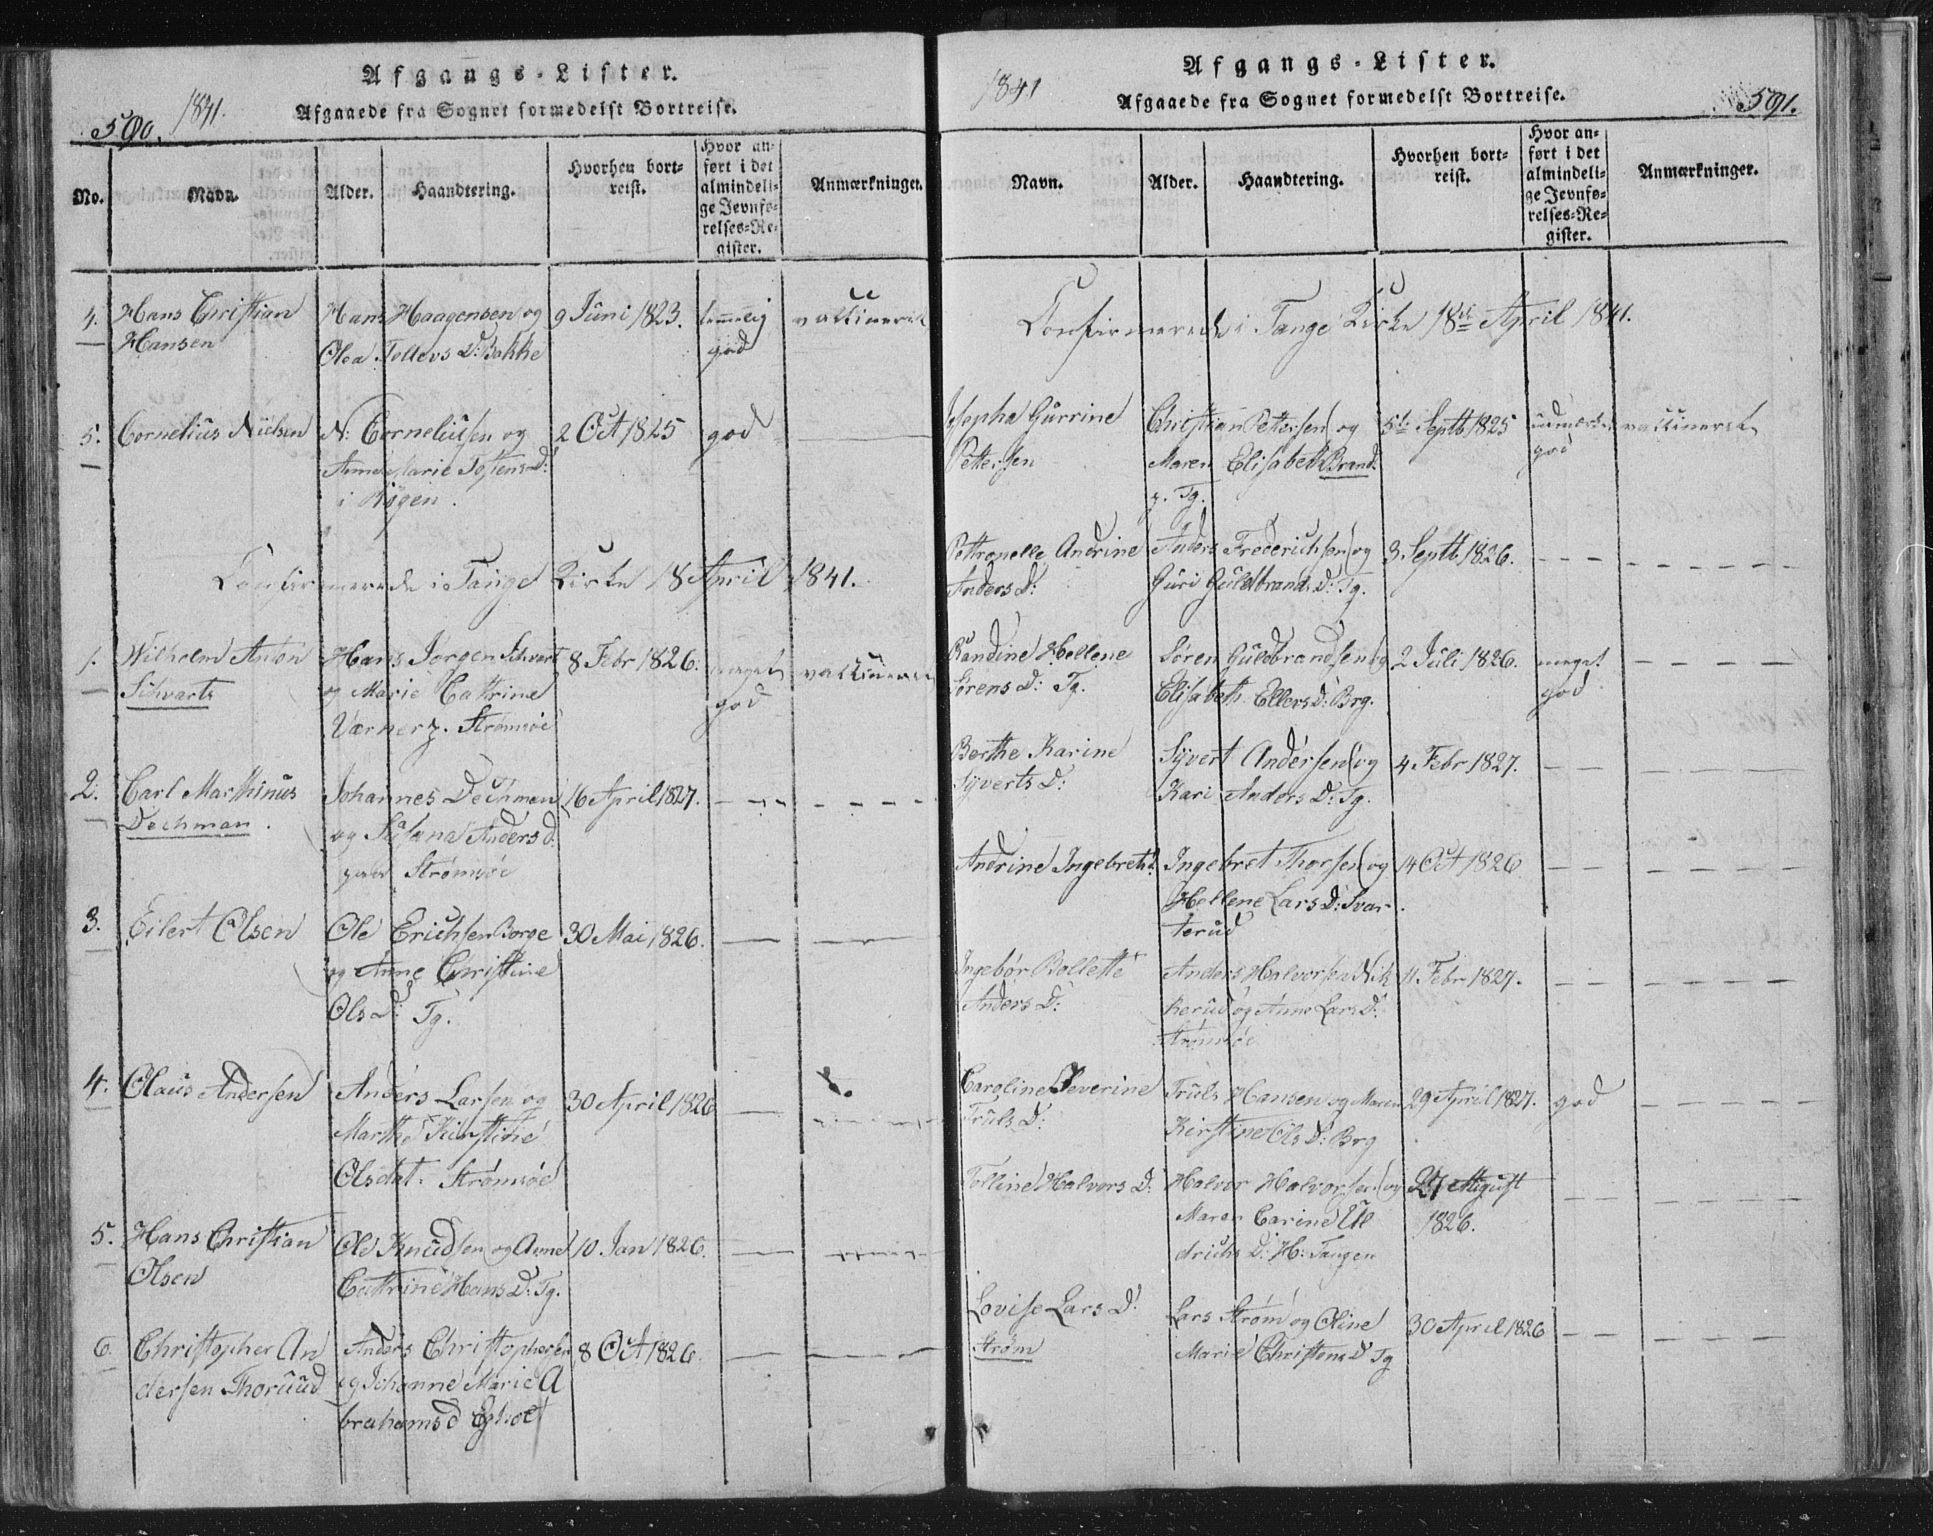 Afgangs-Lister.
1841.
590.
Afgaaede fra Sognet formedelst Bortreise.
No.
Navn.
Alder.
Haandtering.
Hvorhen bort-
reist.
Hvor an-
ført i det
almindeli-
ge Jevnfø-
relses-Re-
gister.
Anmærkninger.
4. Hans Christian Hans Haagensen og 9 Juni 1823. vaccineret
Hansen Olea Tollevs D: Bakke god
5. Cornelius Nielsen N: Corneliusen og 2 Oct 1825 god
Anne Marie D:
i Røgen.
Confirmerede i Tange Kirke 18 April 1841.
1. Wilhelm Anton Hans Jørgen Schvartz 8 Febr 1826. meget vaccineret
Schvartz og Marie Cathrine god
Værner p. Strømsøe
2. Carl Marthinus Johannes Dechman 16 April 1827.
Dechman. og Susana Anders d.
paa Strømsøe
3. Eilert Olsen Ole Erichsen Borge 30 Mai 1826.
og Anne Christine
Ols D: Tg.
4. Claus Andersen Anders Larsen og 30 April 1826
Marthe Kirstine
Olsdat. Strømsøe
5. Hans Christian Ole Knudsen og Anne 10 Jan 1826.
Olsen Cathrine Hans D: Tg.
6. Christopher An Anders Christophersen 8 Oct 1826.
dersen Thoruud og Johanne Marie A
brahams d
Afgangs-Lister.
1841
591.
Afgaaede fra Sognet formedelst Bortreise.
Navn.
Alder.
Haandtering.
Hvorhen bort-
reist.
Hvor an-
ført i det
almindeli-
ge Jevnfø-
relses-Re-
gister.
Anmærkninger.
Confirmerede i Tange Kirke 18de April 1841.
Josepha Gurrine Christian Pettersen og 5te Septb 1825 udmærket vaccineret
Pettersen Maren Elisabeth Brand. god
p. Tg.
Pettronelle Andrine Anders Frederichsen og 3. Septb. 1826.
Anders D: Guri Guldbrands D: Tg.
Randine Hellene Søren Guldbrandsen og 2 Juli 1826. meget
Sørens D: Tg. Elisabeth Ellers D: Brg. god
Berthe Karine Syvert Andersen og 4 Febr 1827.
Syverts D: Kari Anders D: Tg.
Andrine Ingebretsd. Ingebret Thorsen og 14 Oct 1826
Hellene Lars D: Svar
terud
Ingebor Bollette Anders Halvorsen Nik 11 Febr 1827.
Anders D: kerud og Anne Lars D:
Strømsøe
Caroline Severine Truls Hansen og Maren 29 April 1827. god
Truls D: Kirstine Ols D: Brg
Tolline Halvors D: Halvor Halvorsen og 27 August
Maren Carine Ul 1826.
drichs D: H: Tangen
Lovise Lars D: Lars Strøm og Oline 30 April 1826
Strøm Marie Christens D Tg